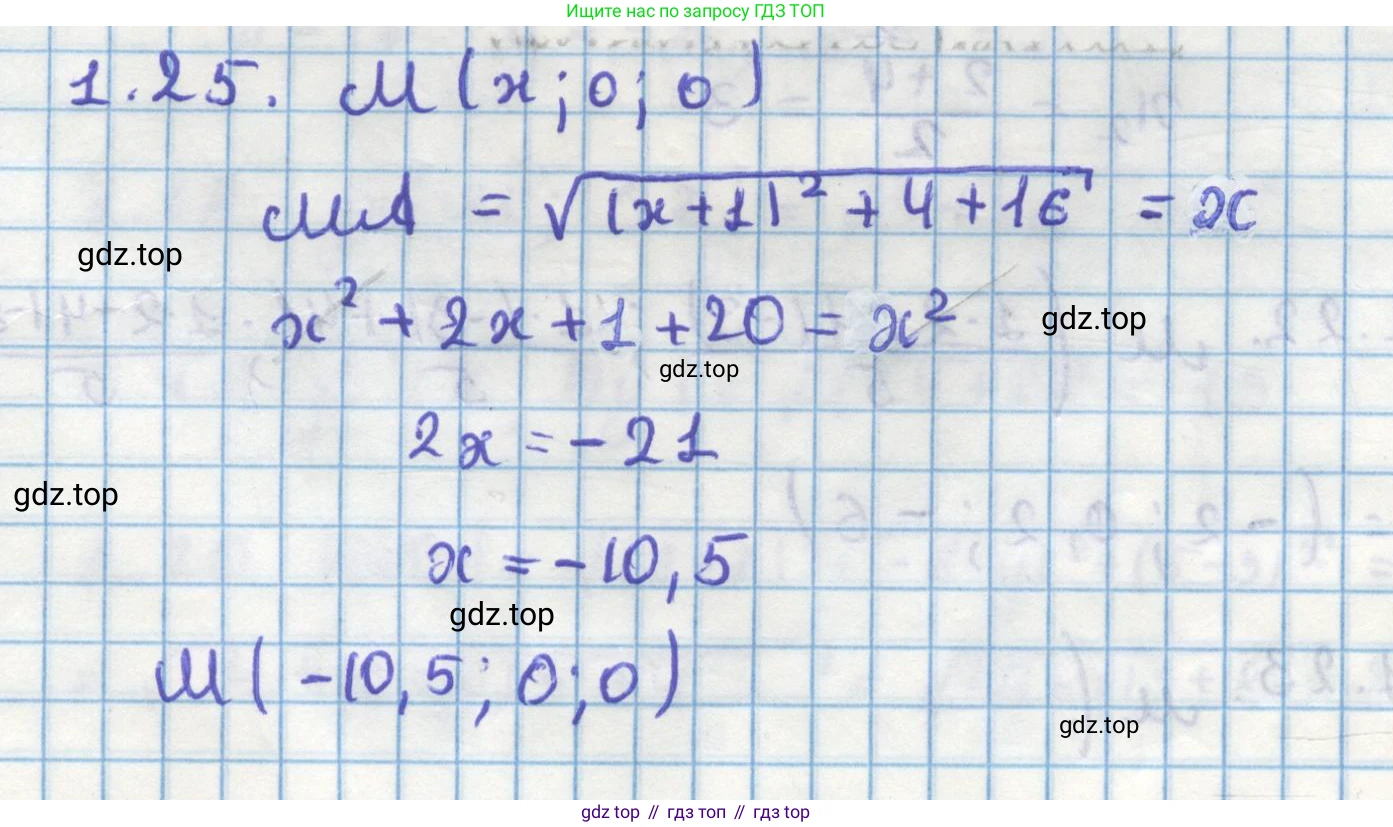 Ищите нас по запросу ГДЗ ТОП
1.25. M(x; 0; 0)
MA = √((x+1)² + 4 + 16) = x
gdz.top
x² + 2x + 1 + 20 = x²
gdz.top
gdz.top
2x = -21
gdz.top
x = -10,5
gdz.top
M(-10,5; 0; 0)
gdz.top
gdz top // гдз топ // гдз top